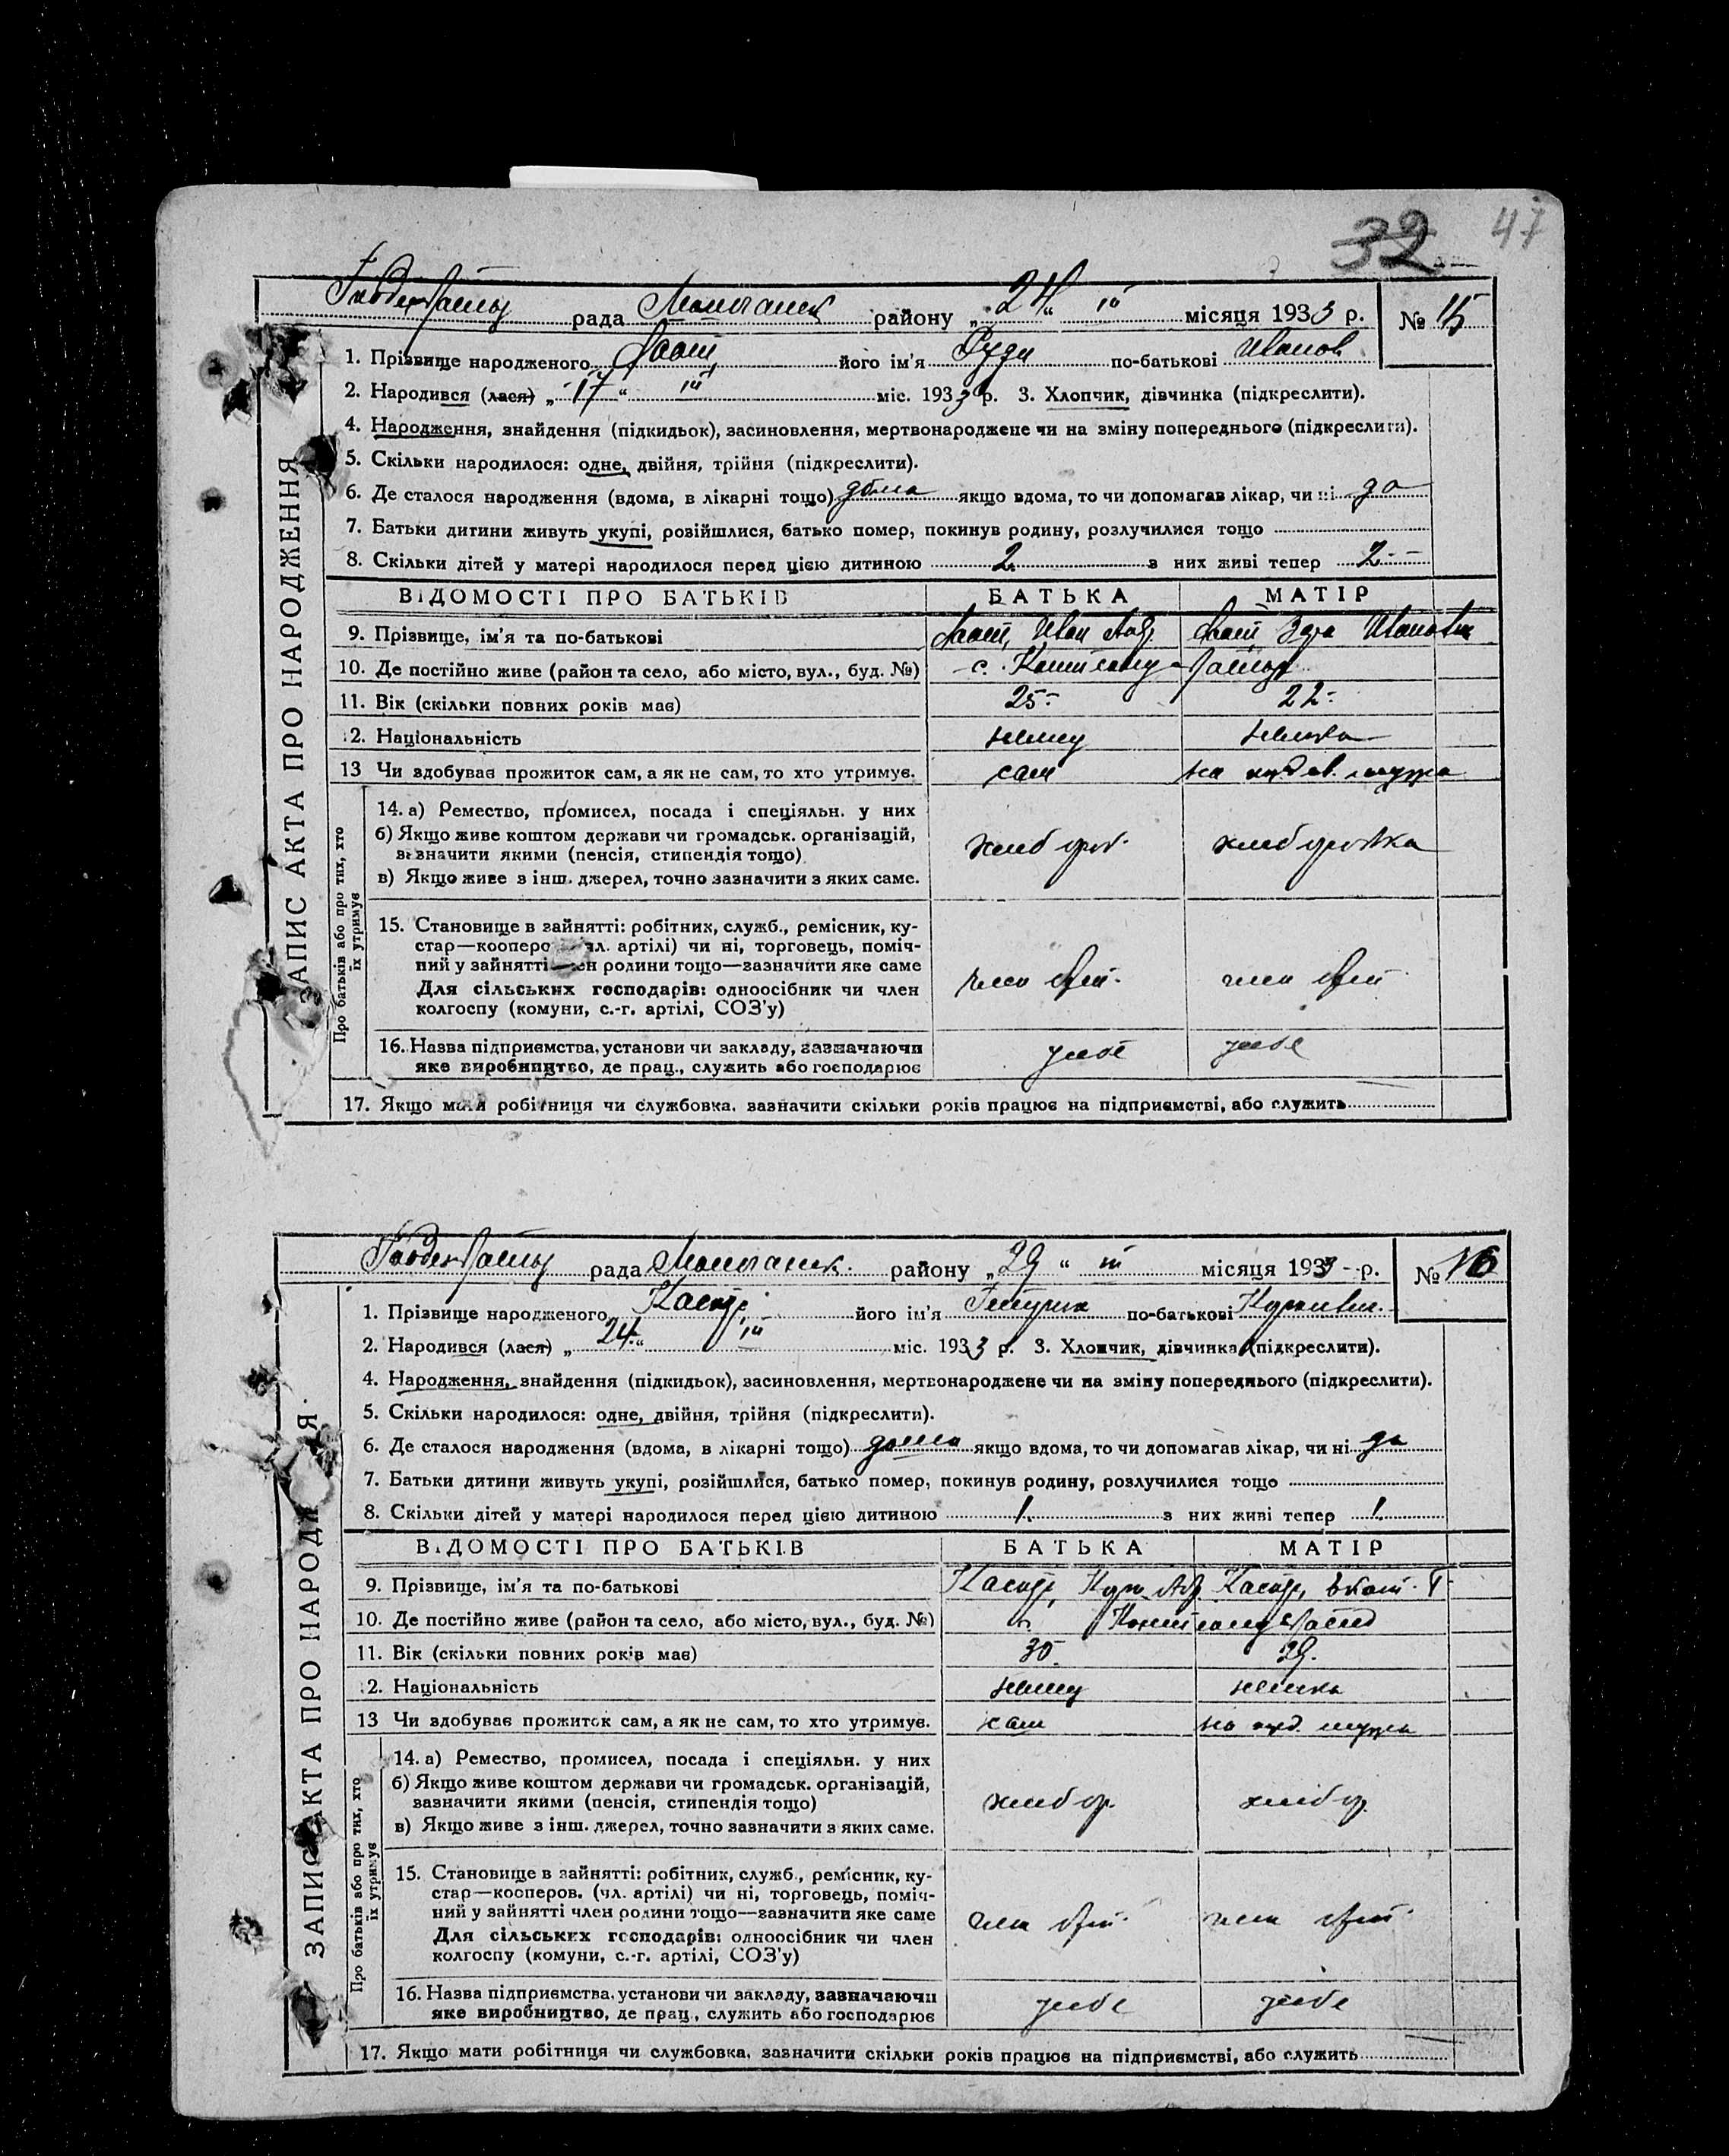 32 47
рада района району „24“ III місяця 1933 р. № 15
1. Прізвище народженого його ім'я Руди по-батькові Иванов
2. Народився (лася) „17“ III міс. 1933 р. 3. Хлопчик, дівчинка (підкреслити).
4. Народження, знайдення (підкидьок), засиновлення, мертвонароджене чи на зміну попереднього (підкреслити).
5. Скільки народилося: одне, двійня, трійня (підкреслити).
6. Де сталося народження (вдома, в лікарні тощо) дома якщо вдома, то чи допомагав лікар, чи ні да
7. Батьки дитини живуть укупі, розійшлися, батько помер, покинув родину, розлучилися тощо
8. Скільки дітей у матері народилося перед цією дитиною 2 з них живі тепер 2
ВІДОМОСТІ ПРО БАТЬКІВ БАТЬКА МАТІР
9. Прізвище, ім'я та по-батькові Иван Ивановна
10. Де постійно живе (район та село, або місто, вул., буд. №) с.
11. Вік (скільки повних років має) 25 22
12. Національність немец немка
13 Чи здобував прожиток сам, а як не сам, то хто утримує. сам на ижд. мужа
14. а) Ремество, промисел, посада і спеціяльн. у них
б) Якщо живе коштом держави чи громадськ. організацій,
зазначити якими (пенсія, стипендія тощо)
в) Якщо живе з інш. джерел, точно зазначити з яких саме.
15. Становище в зайнятті: робітник, служб., ремісник, ку-
стар—кооперо чл. артілі) чи ні, торговець, поміч-
ний у зайнятті член родини тощо—зазначити яке саме
Для сільських господарів: одноосібник чи член
колгоспу (комуни, с.-г. артілі, СОЗ'у)
член арт. член арт.
16. Назва підприємства, установи чи закладу, зазначаючи
яке виробництво, де прац., служить або господарює
17. Якщо мати робітниця чи службовка, зазначити скільки років працює на підприємстві, або служить
Про батьків або про тих, хто
їх утримує
ЗАПИС АКТА ПРО НАРОДЖЕННЯ
рада району „29“ III місяця 1933 р. № 16
1. Прізвище народженого Каспер його ім'я по-батькові
2. Народився (лася) „24“ III міс. 1933 р. 3. Хлопчик, дівчинка (підкреслити).
4. Народження, знайдення (підкидьок), засиновлення, мертвонароджене чи на зміну попереднього (підкреслити).
5. Скільки народилося: одне, двійня, трійня (підкреслити).
6. Де сталося народження (вдома, в лікарні тощо) дома якщо вдома, то чи допомагав лікар, чи ні да
7. Батьки дитини живуть укупі, розійшлися, батько помер, покинув родину, розлучилися тощо
8. Скільки дітей у матері народилося перед цією дитиною 1 з них живі тепер 1
ВІДОМОСТІ ПРО БАТЬКІВ БАТЬКА МАТІР
9. Прізвище, ім'я та по-батькові Каспер, Каспер, Екат.
10. Де постійно живе (район та село, або місто, вул., буд. №)
11. Вік (скільки повних років має) 30 29
12. Національність немец немка
13 Чи здобував прожиток сам, а як не сам, то хто утримує. сам на ижд. мужа
14. а) Ремество, промисел, посада і спеціяльн. у них
б) Якщо живе коштом держави чи громадськ. організацій,
зазначити якими (пенсія, стипендія тощо)
в) Якщо живе з інш. джерел, точно зазначити з яких саме.
15. Становище в зайнятті: робітник, служб., ремісник, ку-
стар—кооперов. (чл. артілі) чи ні, торговець, поміч-
ний у зайнятті член родини тощо—зазначити яке саме
Для сільських господарів: одноосібник чи член
колгоспу (комуни, с.-г. артілі, СОЗ'у)
член арт. член арт.
16. Назва підприємства, установи чи закладу, зазначаючи
яке виробництво, де прац., служить або господарює
17. Якщо мати робітниця чи службовка, зазначити скільки років працює на підприємстві, або служить
Про батьків або про тих, хто
їх утримує
ЗАПИС АКТА ПРО НАРОДЖ Я